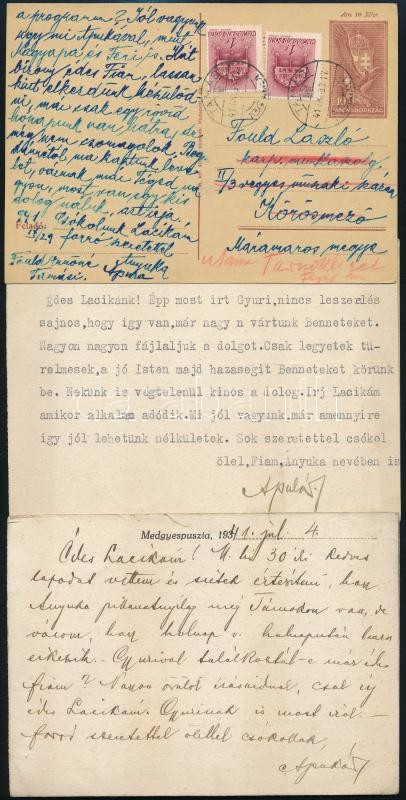 a programm? Jól vagyunk
úgy mi Apukával, mint
Nagyapa és Feri is. Hát
bizony édes Fiam, lassan
készülőd
ni, már csak egy rövid
hónapunk van hátra, de
még nem csomagolok. Bog
kaptunk leve
let, várnak már Téged na
gyon, most van egy kis
dolog náluk,
941 Csókolunk Lacikám
Feladó: IX/29 forró szeretettel
Anyuka
Apuka
Tamási
Ára 10 fillér
MAGYARORSZÁG
10
MAGYAR KIR. POSTA
1
1
TAMÁSI
Fould László
karp. munkaszolg.
II/3 vegyes műszaki század
Kőrösmező
Máramaros megye
Édes Lacikánk! Épp most irt Gyuri,nincs leszerelés
sajnos,hogy igy van,már nagy n vártunk Benneteket.
Nagyon nagyon fájlaljuk a dolgot.Csak legyetek tü-
relmesek,a jó Isten majd hazasegit Benneteket körünk
be. Nekünk is végtelenül kinos a dolog.Irj Lacikám
amikor alkalam adódik.Mi jól vagyunk,már amennyire
igy jól lehetünk nélkületek. Sok szeretettel csókol
ölel,Fiam,Anyuka nevében is
Apukád
Medgyespuszta, 1941. júl 4.
Édes Lacikám! M. hó 30 iki kedves
lapodat vettem és sietek értesíteni, hogy
Anyuka pillanatnyilag még Támokon van, de
várom, hogy holnap v. holnapután haza
érkezik. Gyurival találkoztál-e már édes
fiam? Nagyon örülök írásaidnak, csak így
édes Lacikám. Gyurinak is most írok.
forró szeretettel ölellek csókollak,
Apukád